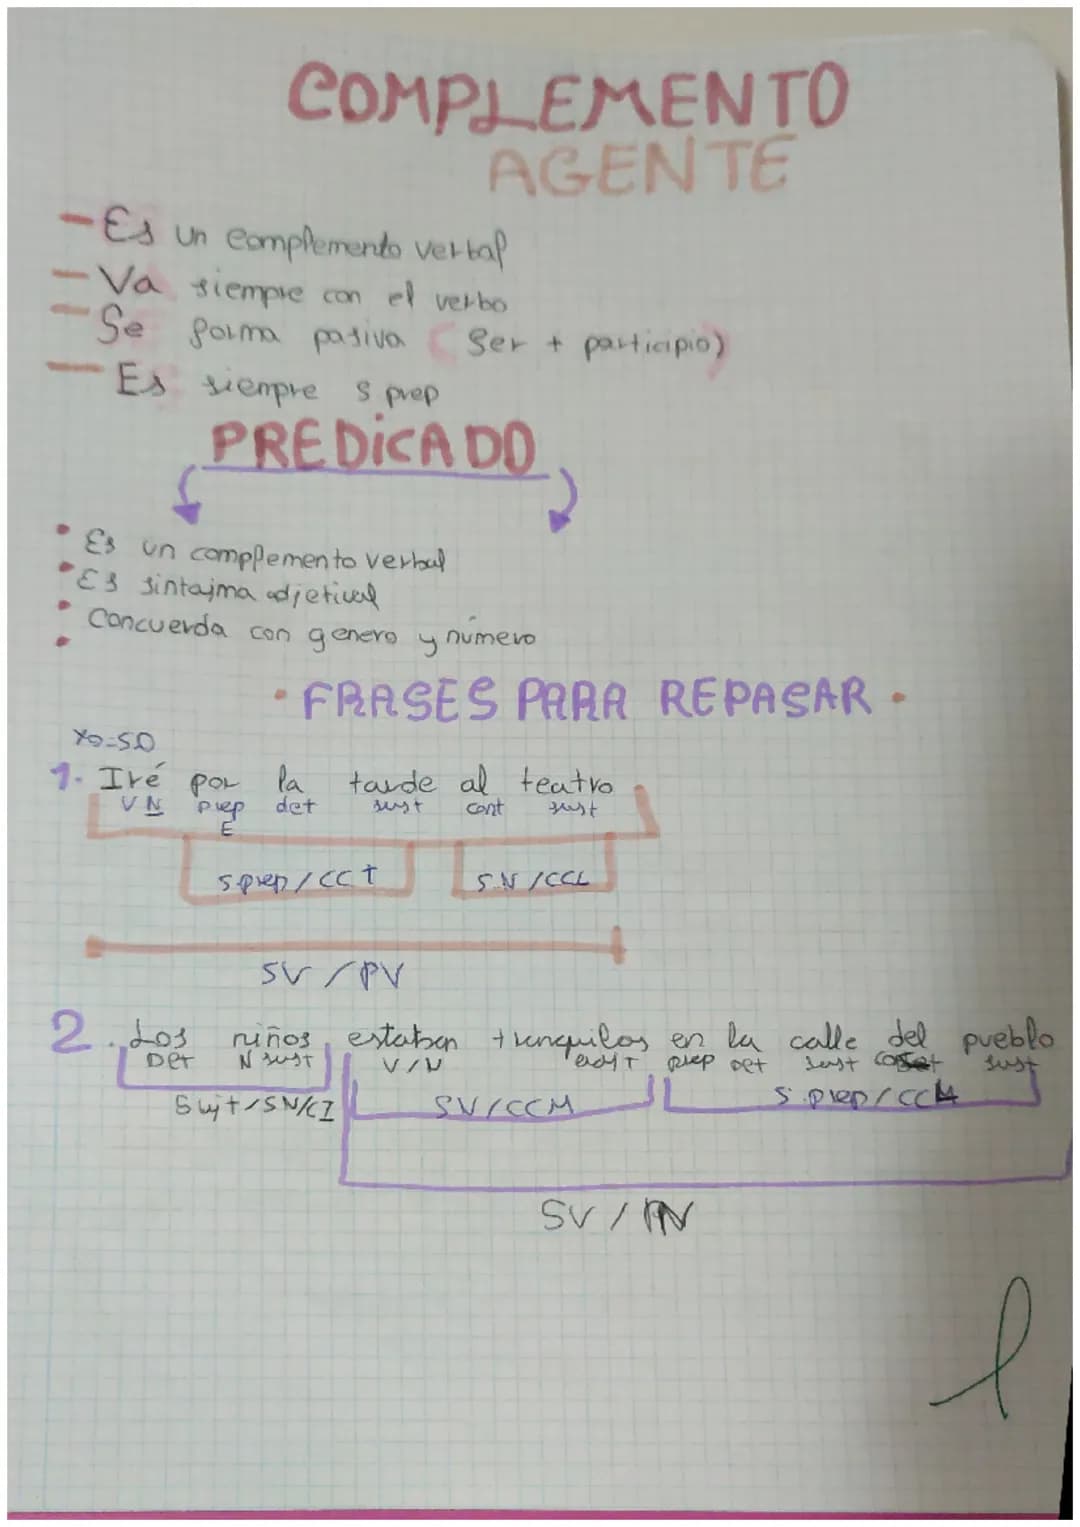 COMPLEMENTO
AGENTE
- Es un complemento verbal
- Va siempre con el verbo
- Se forma pasiva (Ser + participio)
- Es siempre s prep
PREDICADO
• Es un complemento verbal
• Es sintajma adjetival
• Concuerda con genero y número
•
• FRASES PARA REPASAR •
Yo=S.O
1. Iré por la tarde al teatro
V N prep det sust cont sust
E
s prep / CCT S.N / CCL
SV / PV
2. Los niños estaban tranquilos en la calle del pueblo
Det N sust V/N prep det sust sust
Sujt / SN/CI SV/CCM S. prep / CC
SV /